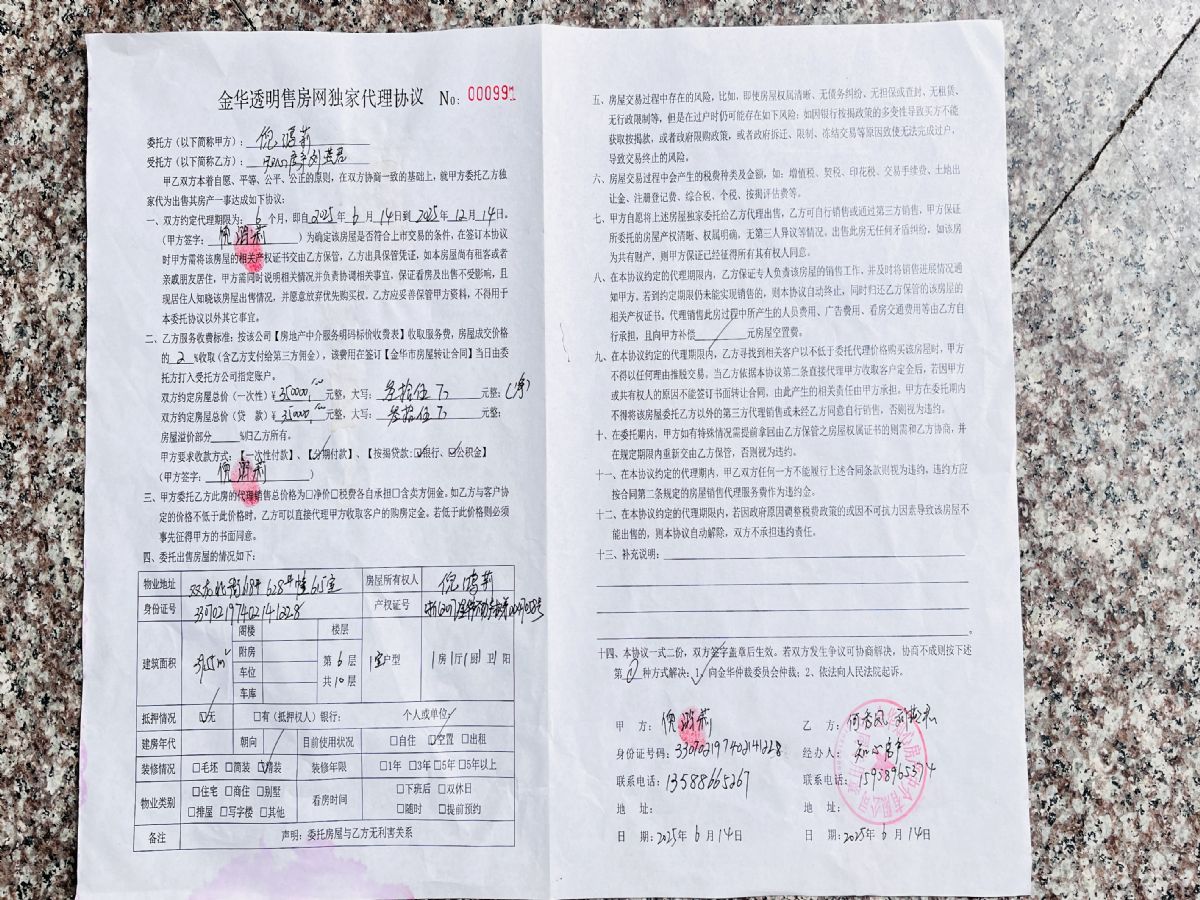 金华透明售房网独家代理协议 No: 000991
委托方（以下简称甲方）：倪鸿莉
受托方（以下简称乙方）：
甲乙双方本着自愿、平等、公平、公正的原则，在双方协商一致的基础上，就甲方委托乙方独
家代为出售其房产一事达成如下协议：
一、双方约定代理期限为：6个月，即自2025年6月14日到2025年12月14日。
（甲方签字：倪鸿莉）为确定该房屋是否符合上市交易的条件，在签订本协议
时甲方需将该房屋的相关产权证书交由乙方保管，乙方出具保管凭证，如本房屋尚有租客或者
亲戚朋友居住，甲方需同时说明相关情况并负责协调相关事宜，保证看房及出售不受影响，且
现居住人知晓该房屋出售情况，并愿意放弃优先购买权。乙方应妥善保管甲方资料，不得用于
本委托协议以外其它事宜。
二、乙方服务收费标准：按该公司【房地产中介服务明码标价收费表】收取服务费，房屋成交价格
的2%收取（含乙方支付给第三方佣金），该费用在签订【金华市房屋转让合同】当日由委
托方打入受托方公司指定账户。
双方约定房屋总价（一次性）¥350000.00元整，大写：叁拾伍万元整；（净）
双方约定房屋总价（贷 款）¥350000.00元整，大写：叁拾伍万元整；
房屋溢价部分____%归乙方所有。
甲方要求收款方式：【一次性付款】、【分期付款】、【按揭贷款:☑银行、☑公积金】
（甲方签字：倪鸿莉）
三、甲方委托乙方此房的代理销售总价格为□净价□税费各自承担□含卖方佣金。如乙方与客户协
定的价格不低于此价格时，乙方可以直接代理甲方收取客户的购房定金。若低于此价格则必须
事先征得甲方的书面同意。
四、委托出售房屋的情况如下：
物业地址 628幢615室 房屋所有权人 倪鸿莉
身份证号 330702197402141228 产权证号
建筑面积 阁楼 楼层
附房 第6层 1室户型 1房1厅1厨1卫1阳
车位 共10层
车库
抵押情况 ☑无 □有（抵押权人）银行： 个人或单位：
建房年代 朝向 目前使用状况 □自住 ☑空置 □出租
装修情况 □毛坯 □简装 ☑精装 装修年限 □1年 □3年 □5年 □5年以上
物业类别 □住宅 □商住 □别墅 看房时间 □下班后 □双休日
□排屋 □写字楼 □其他 □随时 □提前预约
备注 声明：委托房屋与乙方无利害关系
五、房屋交易过程中存在的风险，比如，即使房屋权属清晰、无债务纠纷、无担保或查封、无租赁、
无行政限制等，但是在过户时仍可能存在如下风险：如因银行按揭政策的多变性导致买方不能
获取按揭款，或者政府限购政策，或者政府拆迁、限制、冻结交易等原因致使无法完成过户，
导致交易终止的风险。
六、房屋交易过程中会产生的税费种类及金额，如：增值税、契税、印花税、交易手续费、土地出
让金、注册登记费、综合税、个税、按揭评估费等。
七、甲方自愿将上述房屋独家委托给乙方代理出售，乙方可自行销售或通过第三方销售，甲方保证
所委托的房屋产权清晰、权属明确，无第三人异议等情况。出售此房无任何矛盾纠纷，如该房
为共有财产，则甲方保证已经征得所有其有权人同意。
八、在本协议约定的代理期限内，乙方保证专人负责该房屋的销售工作，并及时将销售进展情况通
知甲方，若到约定期限仍未能实现销售的，则本协议自动终止，同时归还乙方保管的该房屋的
相关产权证书。代理销售此房过程中所产生的人员费用、广告费用、看房交通费用等由乙方自
行承担，且向甲方补偿______元房屋空置费。
九、在本协议约定的代理期限内，乙方寻找到相关客户以不低于委托代理价格购买该房屋时，甲方
不得以任何理由推脱交易。当乙方依据本协议第二条直接代理甲方收取客户定金后，若因甲方
或共有权人的原因不能签订书面转让合同，由此产生的相关责任由甲方承担。甲方在委托期内
不得将该房屋委托乙方以外的第三方代理销售或未经乙方同意自行销售，否则视为违约。
十、在委托期内，甲方如有特殊情况需提前拿回由乙方保管之房屋权属证书的则需和乙方协商，并
在规定期限内重新交由乙方保管，否则视为违约。
十一、在本协议约定的代理期内，甲乙双方任何一方不能履行上述合同条款则视为违约，违约方应
按合同第二条规定的房屋销售代理服务费作为违约金。
十二、在本协议约定的代理期限内，若因政府原因调整税费政策的或因不可抗力因素导致该房屋不
能出售的，则本协议自动解除，双方不承担违约责任。
十三、补充说明：
十四、本协议一式二份，双方签字盖章后生效。若双方发生争议可协商解决，协商不成则按下述
第①种方式解决：1、向金华仲裁委员会仲裁；2、依法向人民法院起诉。
甲 方：倪鸿莉 乙 方：
身份证号码：330702197402141228 经办人：知心房产
联系电话：13588665267 联系电话：
地 址： 地 址：
日 期：2025年6月14日 日 期：2025年6月14日